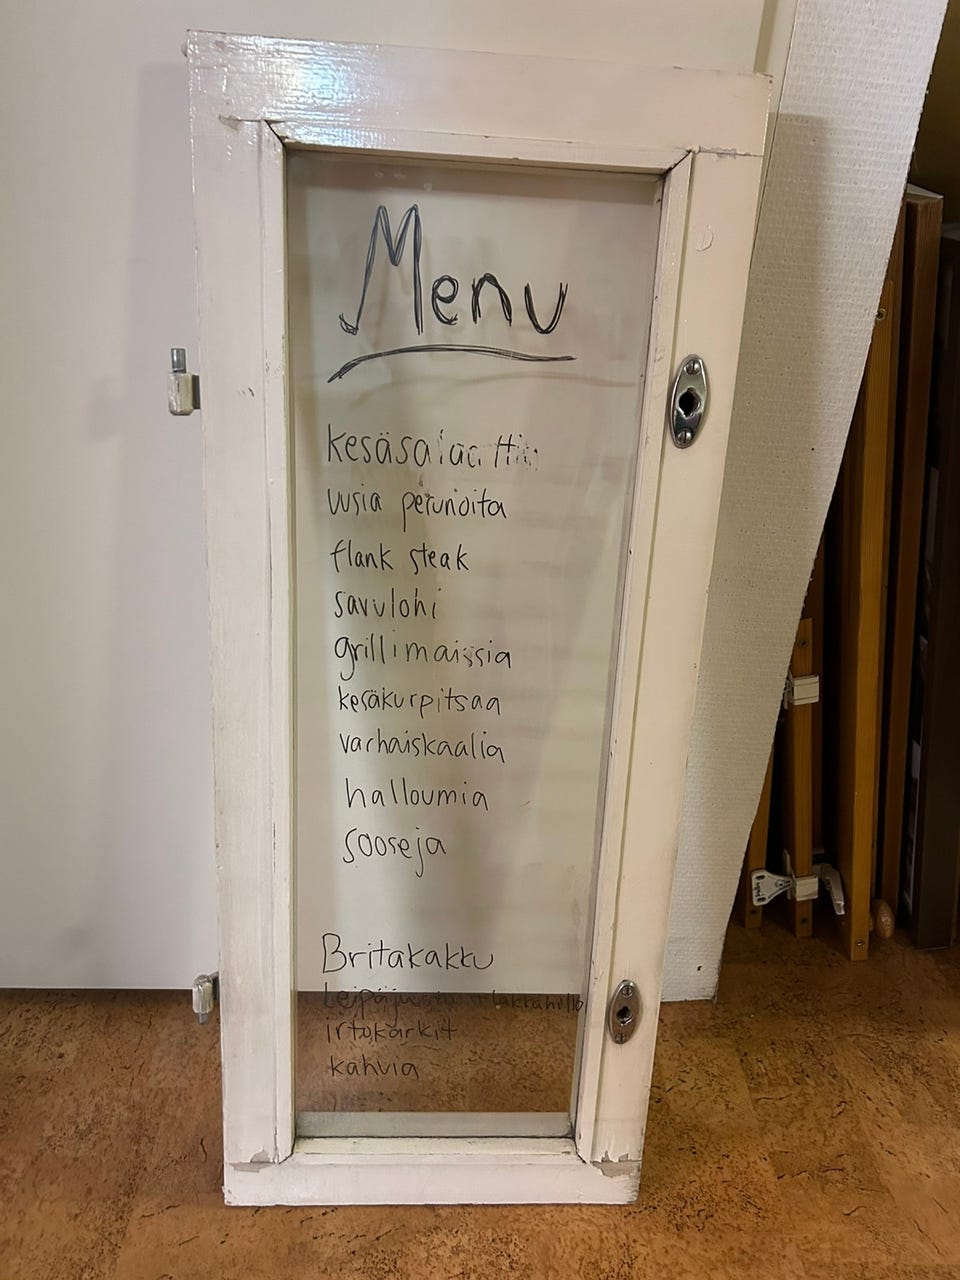 Menu
kesäsalaattia
uusia perunoita
flank steak
savulohi
grillimaissia
kesäkurpitsaa
varhaiskaalia
halloumia
sooseja
Britakakku
Leipäjuusto + lakkahillo
irtokarkit
kahvia